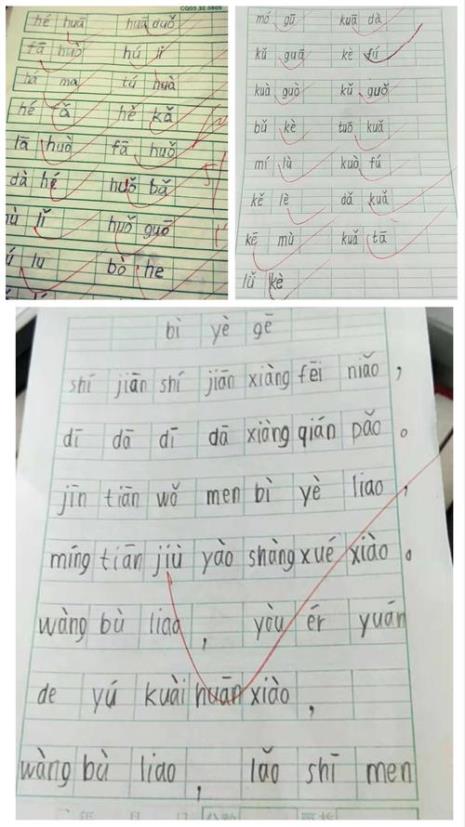 hé huā huā duǒ
fā huò hú lì
há ma tú huà
hé tǎ hě kǎ
lā huǒ fā huǒ
dà hé huǒ bǎ
lǐ huǒ guō
lu bò he
mó gū kuā dà
kǔ guā kè fú
kuà guò kǔ guǒ
bǔ kè tuō kuǎ
mí lù kuò fú
kě lè dǎ kuǎ
kē mù kuǎ tā
lǜ kè
bì yè gē
shí jiān shí jiān xiàng fēi niǎo，
dī dā dī dā xiàng qián pǎo。
jīn tiān wǒ men bì yè liao，
míng tiān jiù yào shàng xué xiào。
wàng bù liao， yòu ér yuán
de yú kuài huān xiào，
wàng bù liao， lǎo shī men